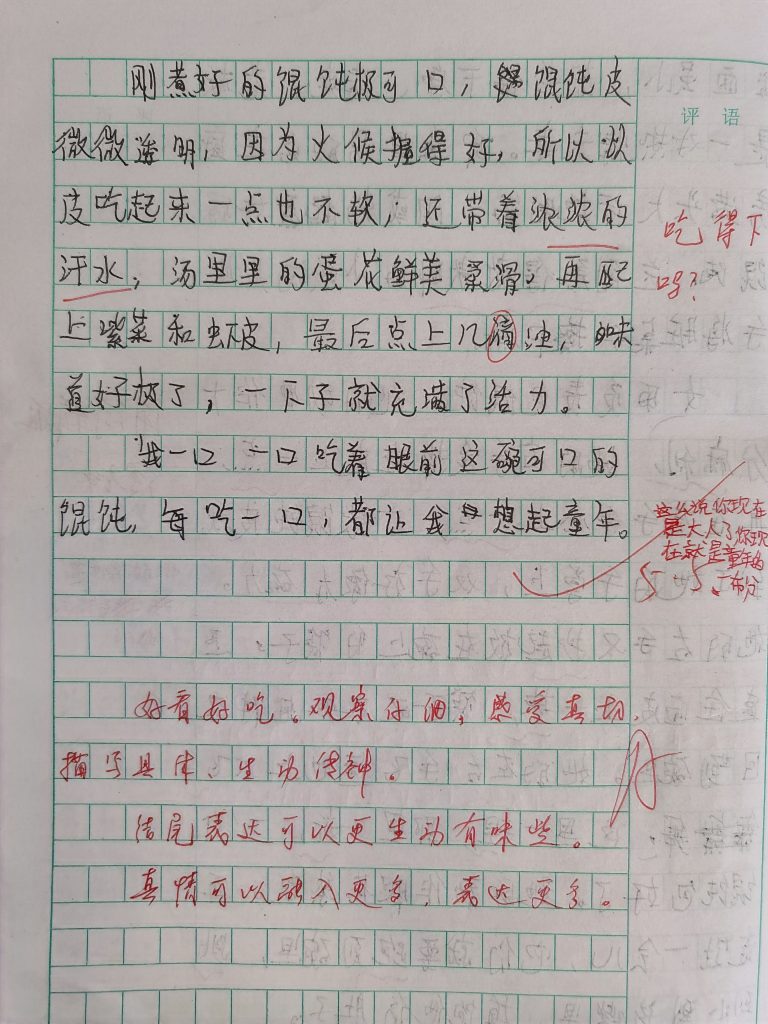 刚煮好的馄饨极可口，馄饨皮
微微透明，因为火候握得好，所以以
皮吃起来一点也不软，还带着浓浓的
汗水，汤里里的蛋花鲜美柔滑，再配
上紫菜和虾皮，最后点上几滴油，味
道好极了，一下子就充满了活力。
我一口一口吃着眼前这碗可口的
馄饨，每吃一口，都让我想起童年。
评语
吃得下
吗？
这么说你现在
是大人了你现
在就是童年的
一部分
好看好吃。观察仔细，感受真切，
描写具体、生动传神。
结尾表达可以更生动有味些。
真情可以融入更多，表达更多。